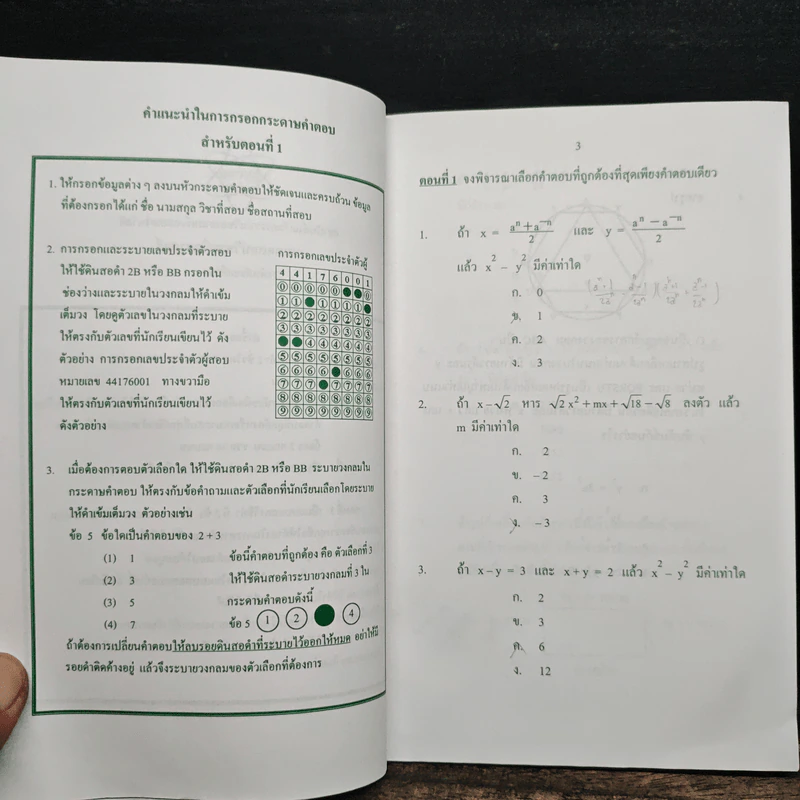 คำแนะนำในการกรอกกระดาษคำตอบ
สำหรับตอนที่ 1
1. ให้กรอกข้อมูลต่าง ๆ ลงบนหัวกระดาษคำตอบให้ชัดเจนและครบถ้วน ข้อมูล
ที่ต้องกรอกได้แก่ ชื่อ นามสกุล วิชาที่สอบ ชื่อสถานที่สอบ
2. การกรอกและระบายเลขประจำตัวสอบ
ให้ใช้ดินสอดำ 2B หรือ BB กรอกใน
ช่องว่างและระบายในวงกลมให้ดำเข้ม
เต็มวง โดยดูตัวเลขในวงกลมที่ระบาย
ให้ตรงกับตัวเลขที่นักเรียนเขียนไว้ ดัง
ตัวอย่าง การกรอกเลขประจำตัวผู้สอบ
หมายเลข 44176001 ทางขวามือ
ให้ตรงกับตัวเลขที่นักเรียนเขียนไว้
ดังตัวอย่าง
การกรอกเลขประจำตัวผู้
4 4 1 7 6 0 0 1
0 0 0 0 0 0
1 1 1 1 1 1
2 2 2 2 2 2 2 2
3 3 3 3 3 3 3 3
4 4 4 4 4 4
5 5 5 5 5 5 5 5
6 6 6 6 6 6 6
7 7 7 7 7 7 7
8 8 8 8 8 8 8 8
9 9 9 9 9 9 9 9
3. เมื่อต้องการตอบตัวเลือกใด ให้ใช้ดินสอดำ 2B หรือ BB ระบายวงกลมใน
กระดาษคำตอบ ให้ตรงกับข้อคำถามและตัวเลือกที่นักเรียนเลือกโดยระบาย
ให้ดำเข้มเต็มวง ตัวอย่างเช่น
ข้อ 5 ข้อใดเป็นคำตอบของ 2 + 3
(1) 1 ข้อนี้คำตอบที่ถูกต้อง คือ ตัวเลือกที่ 3
(2) 3 ให้ใช้ดินสอดำระบายวงกลมที่ 3 ใน
(3) 5 กระดาษคำตอบดังนี้
(4) 7 ข้อ 5 1 2 4
ถ้าต้องการเปลี่ยนคำตอบให้ลบรอยดินสอดำที่ระบายไว้ออกให้หมด อย่าให้มี
รอยดำติดค้างอยู่ แล้วจึงระบายวงกลมของตัวเลือกที่ต้องการ
3
ตอนที่ 1 จงพิจารณาเลือกคำตอบที่ถูกต้องที่สุดเพียงคำตอบเดียว
1. ถ้า x = (aⁿ + a⁻ⁿ)/2 และ y = (aⁿ − a⁻ⁿ)/2
แล้ว x² − y² มีค่าเท่าใด
ก. 0
ข. 1
ค. 2
ง. 3
2. ถ้า x − √2 หาร √2 x² + mx + √18 − √8 ลงตัว แล้ว
m มีค่าเท่าใด
ก. 2
ข. −2
ค. 3
ง. −3
3. ถ้า x − y = 3 และ x + y = 2 แล้ว x² − y² มีค่าเท่าใด
ก. 2
ข. 3
ค. 6
ง. 12